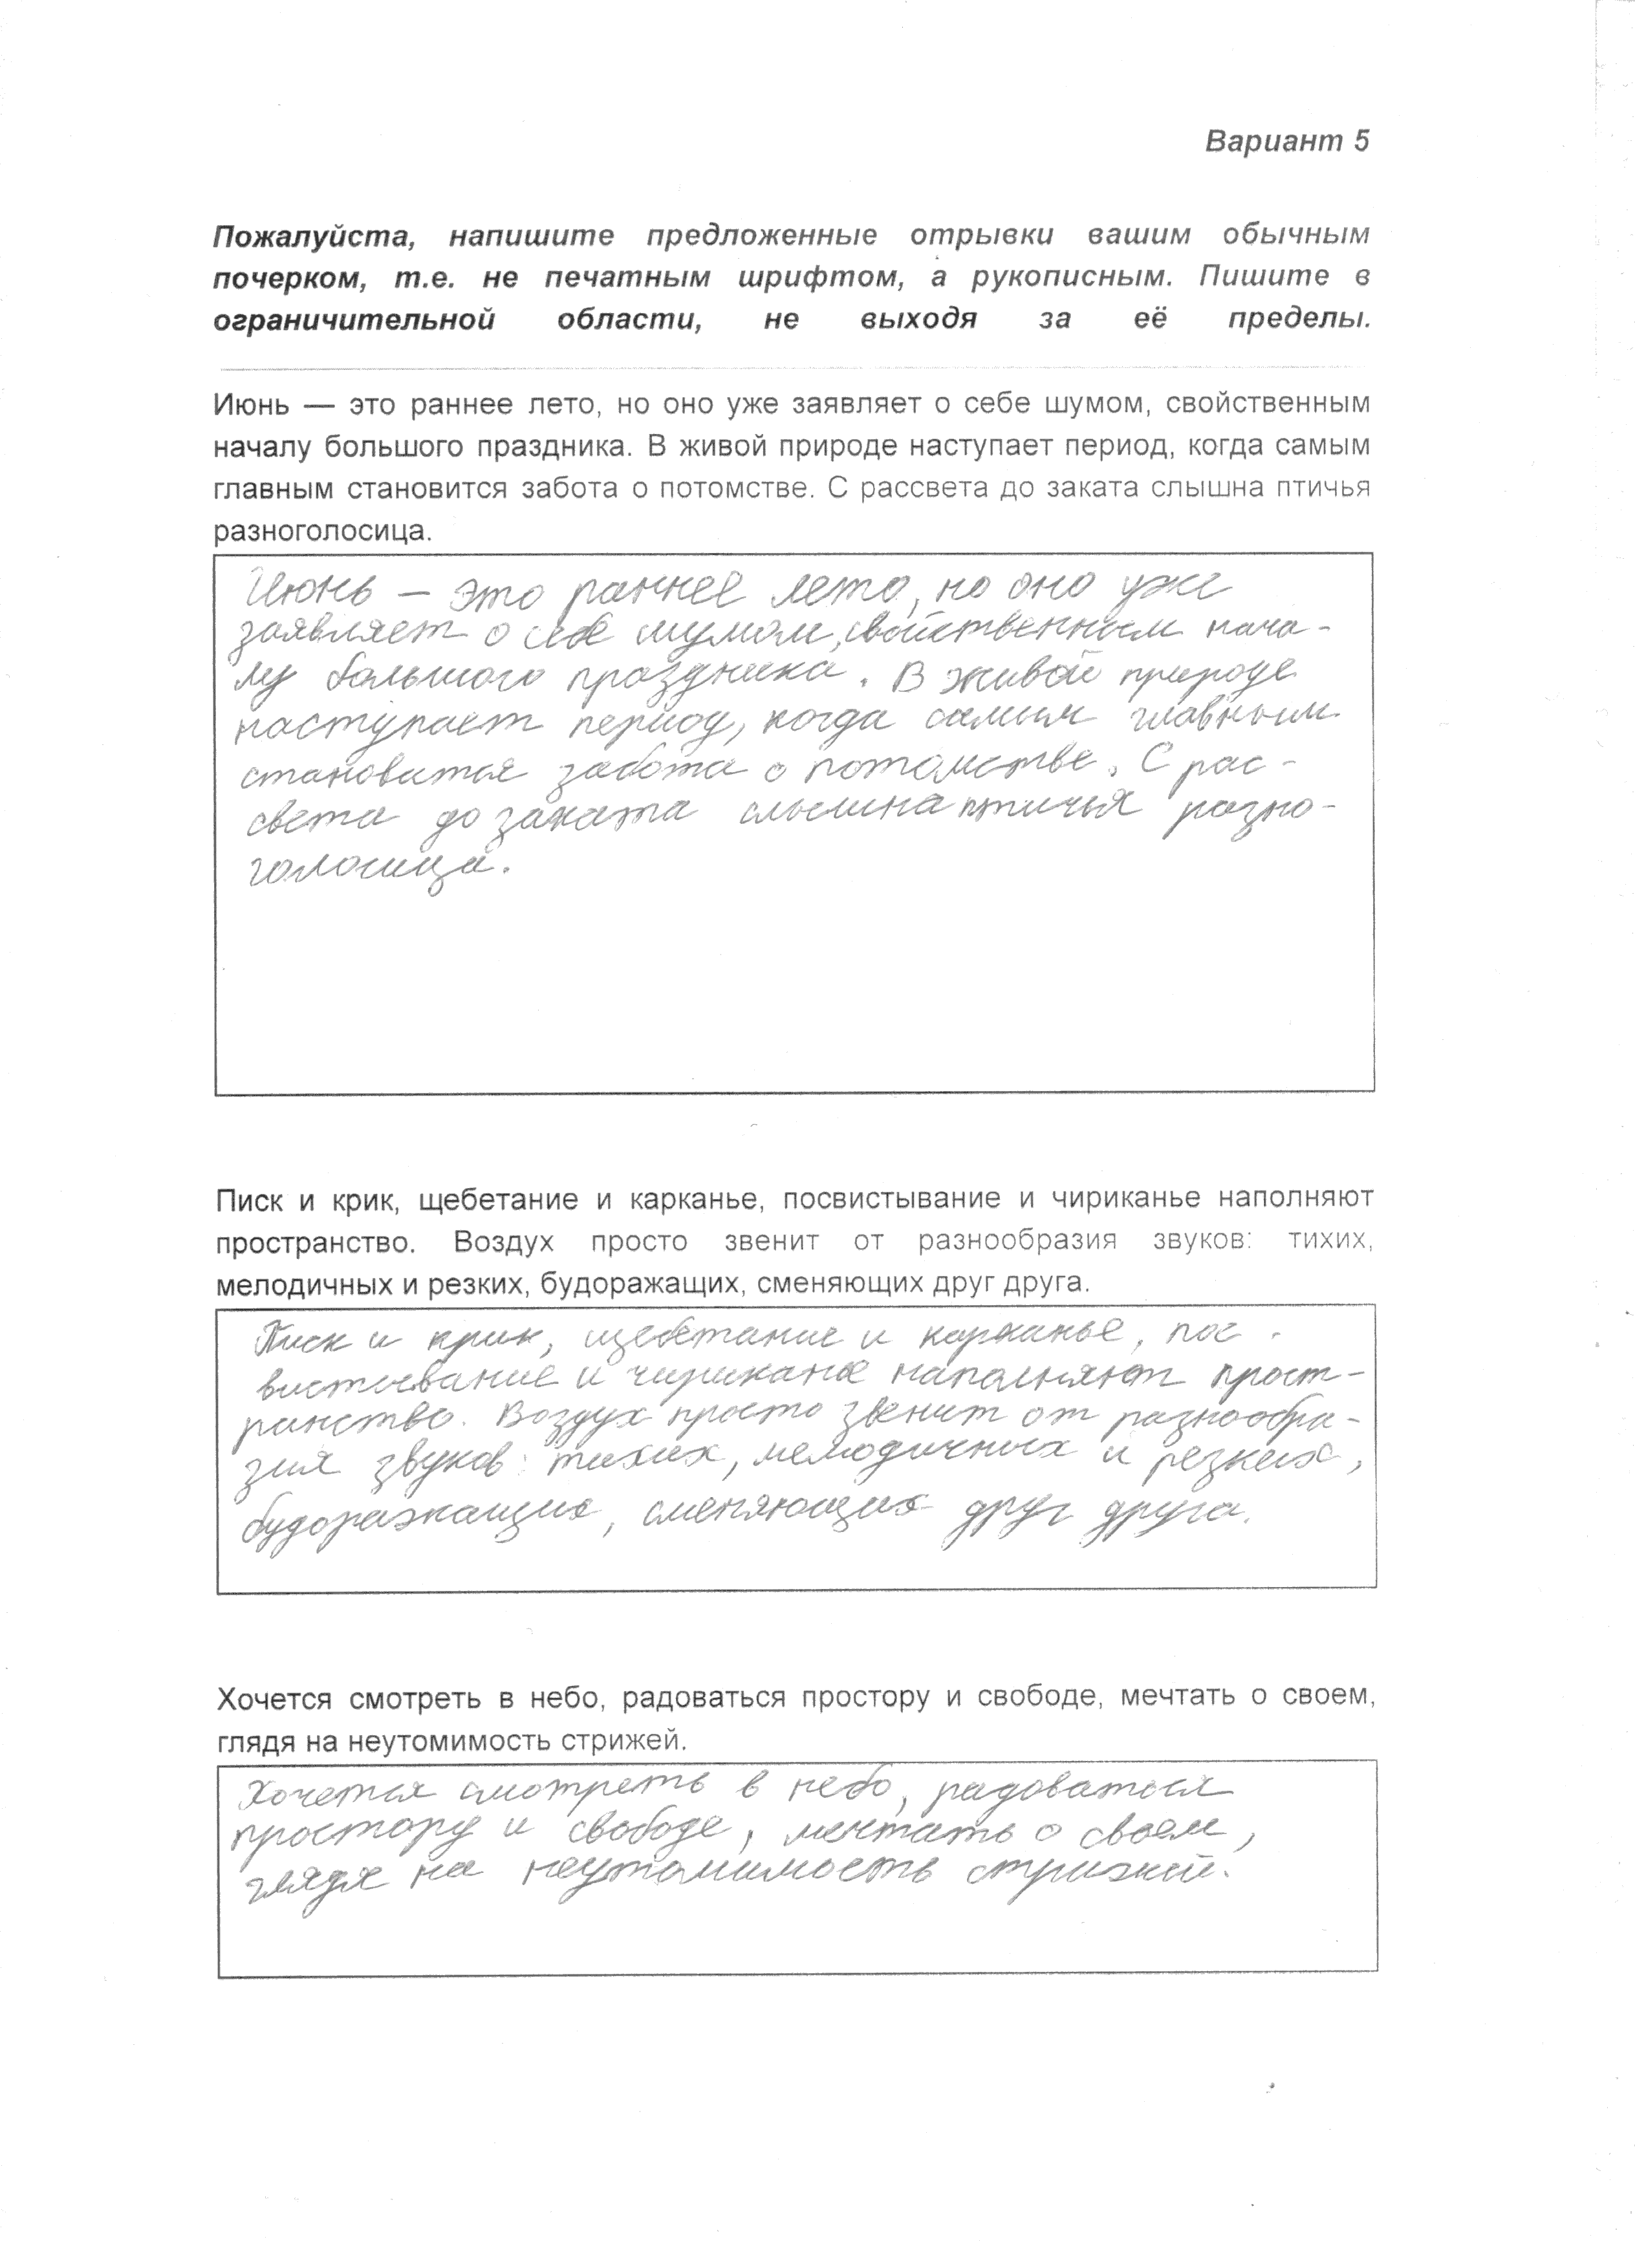 Вариант 5
Пожалуйста, напишите предложенные отрывки вашим обычным
почерком, т.е. не печатным шрифтом, а рукописным. Пишите в
ограничительной области, не выходя за её пределы.
Июнь — это раннее лето, но оно уже заявляет о себе шумом, свойственным
началу большого праздника. В живой природе наступает период, когда самым
главным становится забота о потомстве. С рассвета до заката слышна птичья
разноголосица.
Июнь – это раннее лето, но оно уже
заявляет о себе шумом, свойственным нача-
лу большого праздника. В живой природе
наступает период, когда самым главным
становится забота о потомстве. С рас-
света до заката слышна птичья разно-
голосица.
Писк и крик, щебетание и карканье, посвистывание и чириканье наполняют
пространство. Воздух просто звенит от разнообразия звуков: тихих,
мелодичных и резких, будоражащих, сменяющих друг друга.
Писк и крик, щебетание и карканье, пос-
вистывание и чириканье наполняют прост-
ранство. Воздух просто звенит от разнообра-
зия звуков: тихих, мелодичных и резких,
будоражащих, сменяющих друг друга.
Хочется смотреть в небо, радоваться простору и свободе, мечтать о своем,
глядя на неутомимость стрижей.
Хочется смотреть в небо, радоваться
простору и свободе, мечтать о своем,
глядя на неутомимость стрижей.